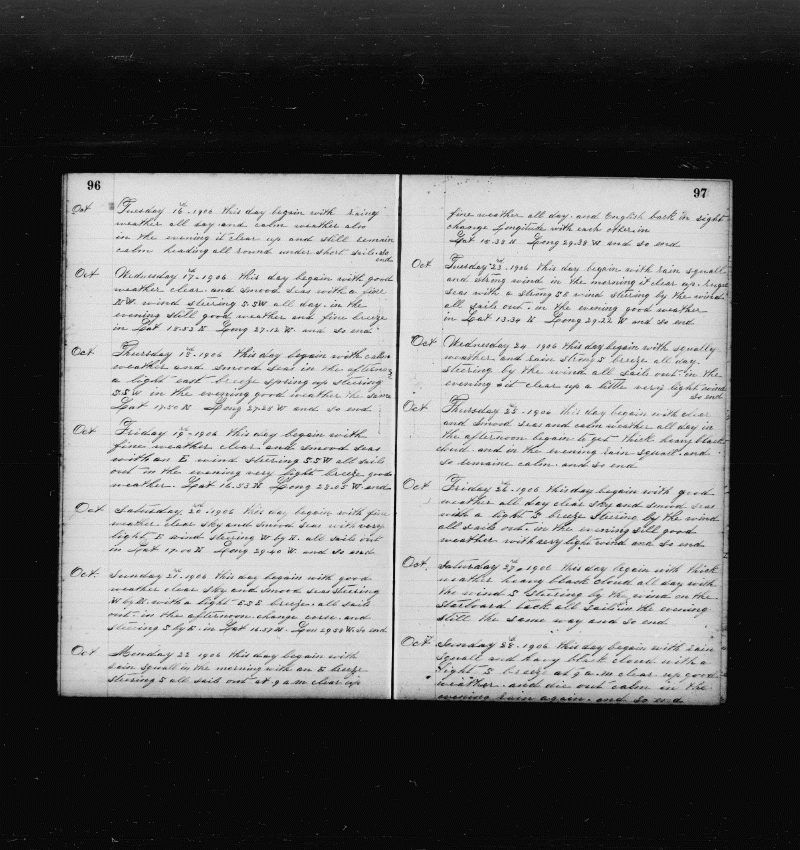 96
Oct Tuesday 16th 1906 this day begain with raing
weather all say and calm weather also
in the evening it clear up and still remain
calm heading all round under short sails so
end
Oct Wednesday 17th 1906 this day begain with good
weather clear and smood seas with a fine
wind steering SSW all day. in the
evening still good weather and fine breeze
in Lat 18.52 N Long 27.12 W and so end
Oct Thursday 18th 1906 this day begain with calm
weather and smood seas in the afternoon
a light east breeze spring up steering
SSW in the evening good weather the same
Lat 17.50 N Long 27.28 W and so end
Oct Friday 19th 1906 this day begain with
fine weather clear and smood seas
with an E wind steering SSW all sails
out in the evening very light breeze good
weather. Lat 16.53 N Long 28.05 W and
Oct Saturday 20th 1906 this day begain with fine
weather clear sky and smood seas with very
light E wind steering W by N. all sails out
in Lat 17.00 N Long 29.40 W and so end
Oct. Sunday 21st 1906 this day begain with good
weather clear sky and smood seas steering
W by N. with a light ESE breeze. all sails
out. in the afternoon change corse and
steering S by E. in Lat 16.59 N. Lon 29.58 W. so end
Oct Monday 22 1906 this day begain with
rain squall in the morning with an E breeze
steering S all sails out at 9 am clear up
97
fine weather all day. and English bark in sight
change Longitude with each other in
Lat 15.33 N Long 29.38 W and so end
Oct Tuesday 23rd 1906 this day begain with rain squall
and strong wind in the morning it clear up.
seas with a strong SE wind steering by the wind
all sails out. in the evening good weather
in Lat 13.34 N Long 29.22 W and so end
Oct Wednesday 24 1906 this day begain with squally
weather and rain strong S breeze all day.
steering by the wind all sails out. in the
evening it clear up a little very light wind
so end
Oct Thursday 25th 1906 this day begain with clear
and smood seas and calm weather all day in
the afternoon begain to get thick heavy black
cloud. and in the evening rain squall. and
so remaine calm. and so end
Oct Friday 26th 1906 this day begain with good
weather all day clear sky and smood seas
with a light S breeze steering by the wind
all sails out. in the evening still good
weather with very light wind and so end
Oct. Saturday 27th 1906 this day begain with thick
weather heavy black cloud all day with
the wind S steering by the wind on the
starboard tack all sails in the evening
still the same way and so end
Oct Sunday 28th 1906 this day begain with rain
squall and havy black cloud with a
light S breeze at 9 a.m clear up good
weather. and die out calm in the
evening rain again. and so end